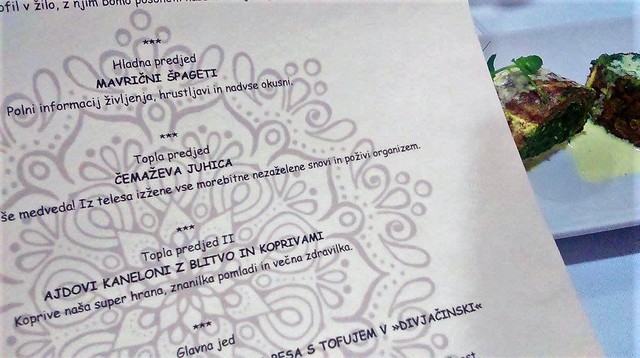 v žilo, z njim bomo
***
Hladna predjed
MAVRIČNI ŠPAGETI
Polni informacij življenja, hrustljavi in nadvse okusni.
***
Topla predjed
ČEMAŽEVA JUHICA
še medveda! Iz telesa izžene vse morebitne nezaželene snovi in poživi organizem.
***
Topla predjed II
AJDOVI KANELONI Z BLITVO IN KOPRIVAMI
Koprive naša super hrana, znanilka pomladi in večna zdravilka.
***
Glavna jed
S TOFUJEM V »DIVJAČINSKI«